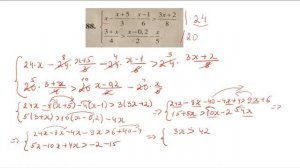 88. { x - x+5/3 - x-1/6 > 3x+2/8
3+x/4 > x-0,2/2 - x/5
1·24
/20
{ 24·x - 24·x+5/3 - 24·x-1/6 > 24·3x+2/8
20·3+x/4 > 20·x-0,2/2 - 20·x/5
=> { 24x - 8(x+5) - 4(x-1) > 3(3x+2)
5(3+x) > 10(x-0,2) - 4x
=> { 24x - 8x - 40 - 4x + 4 > 9x + 6
15 + 5x > 10x - 2 - 4x
=> { 24x - 8x - 4x - 9x > 6 + 40 - 4
5x - 10x + 4x > -2 - 15
=> { 3x > 42